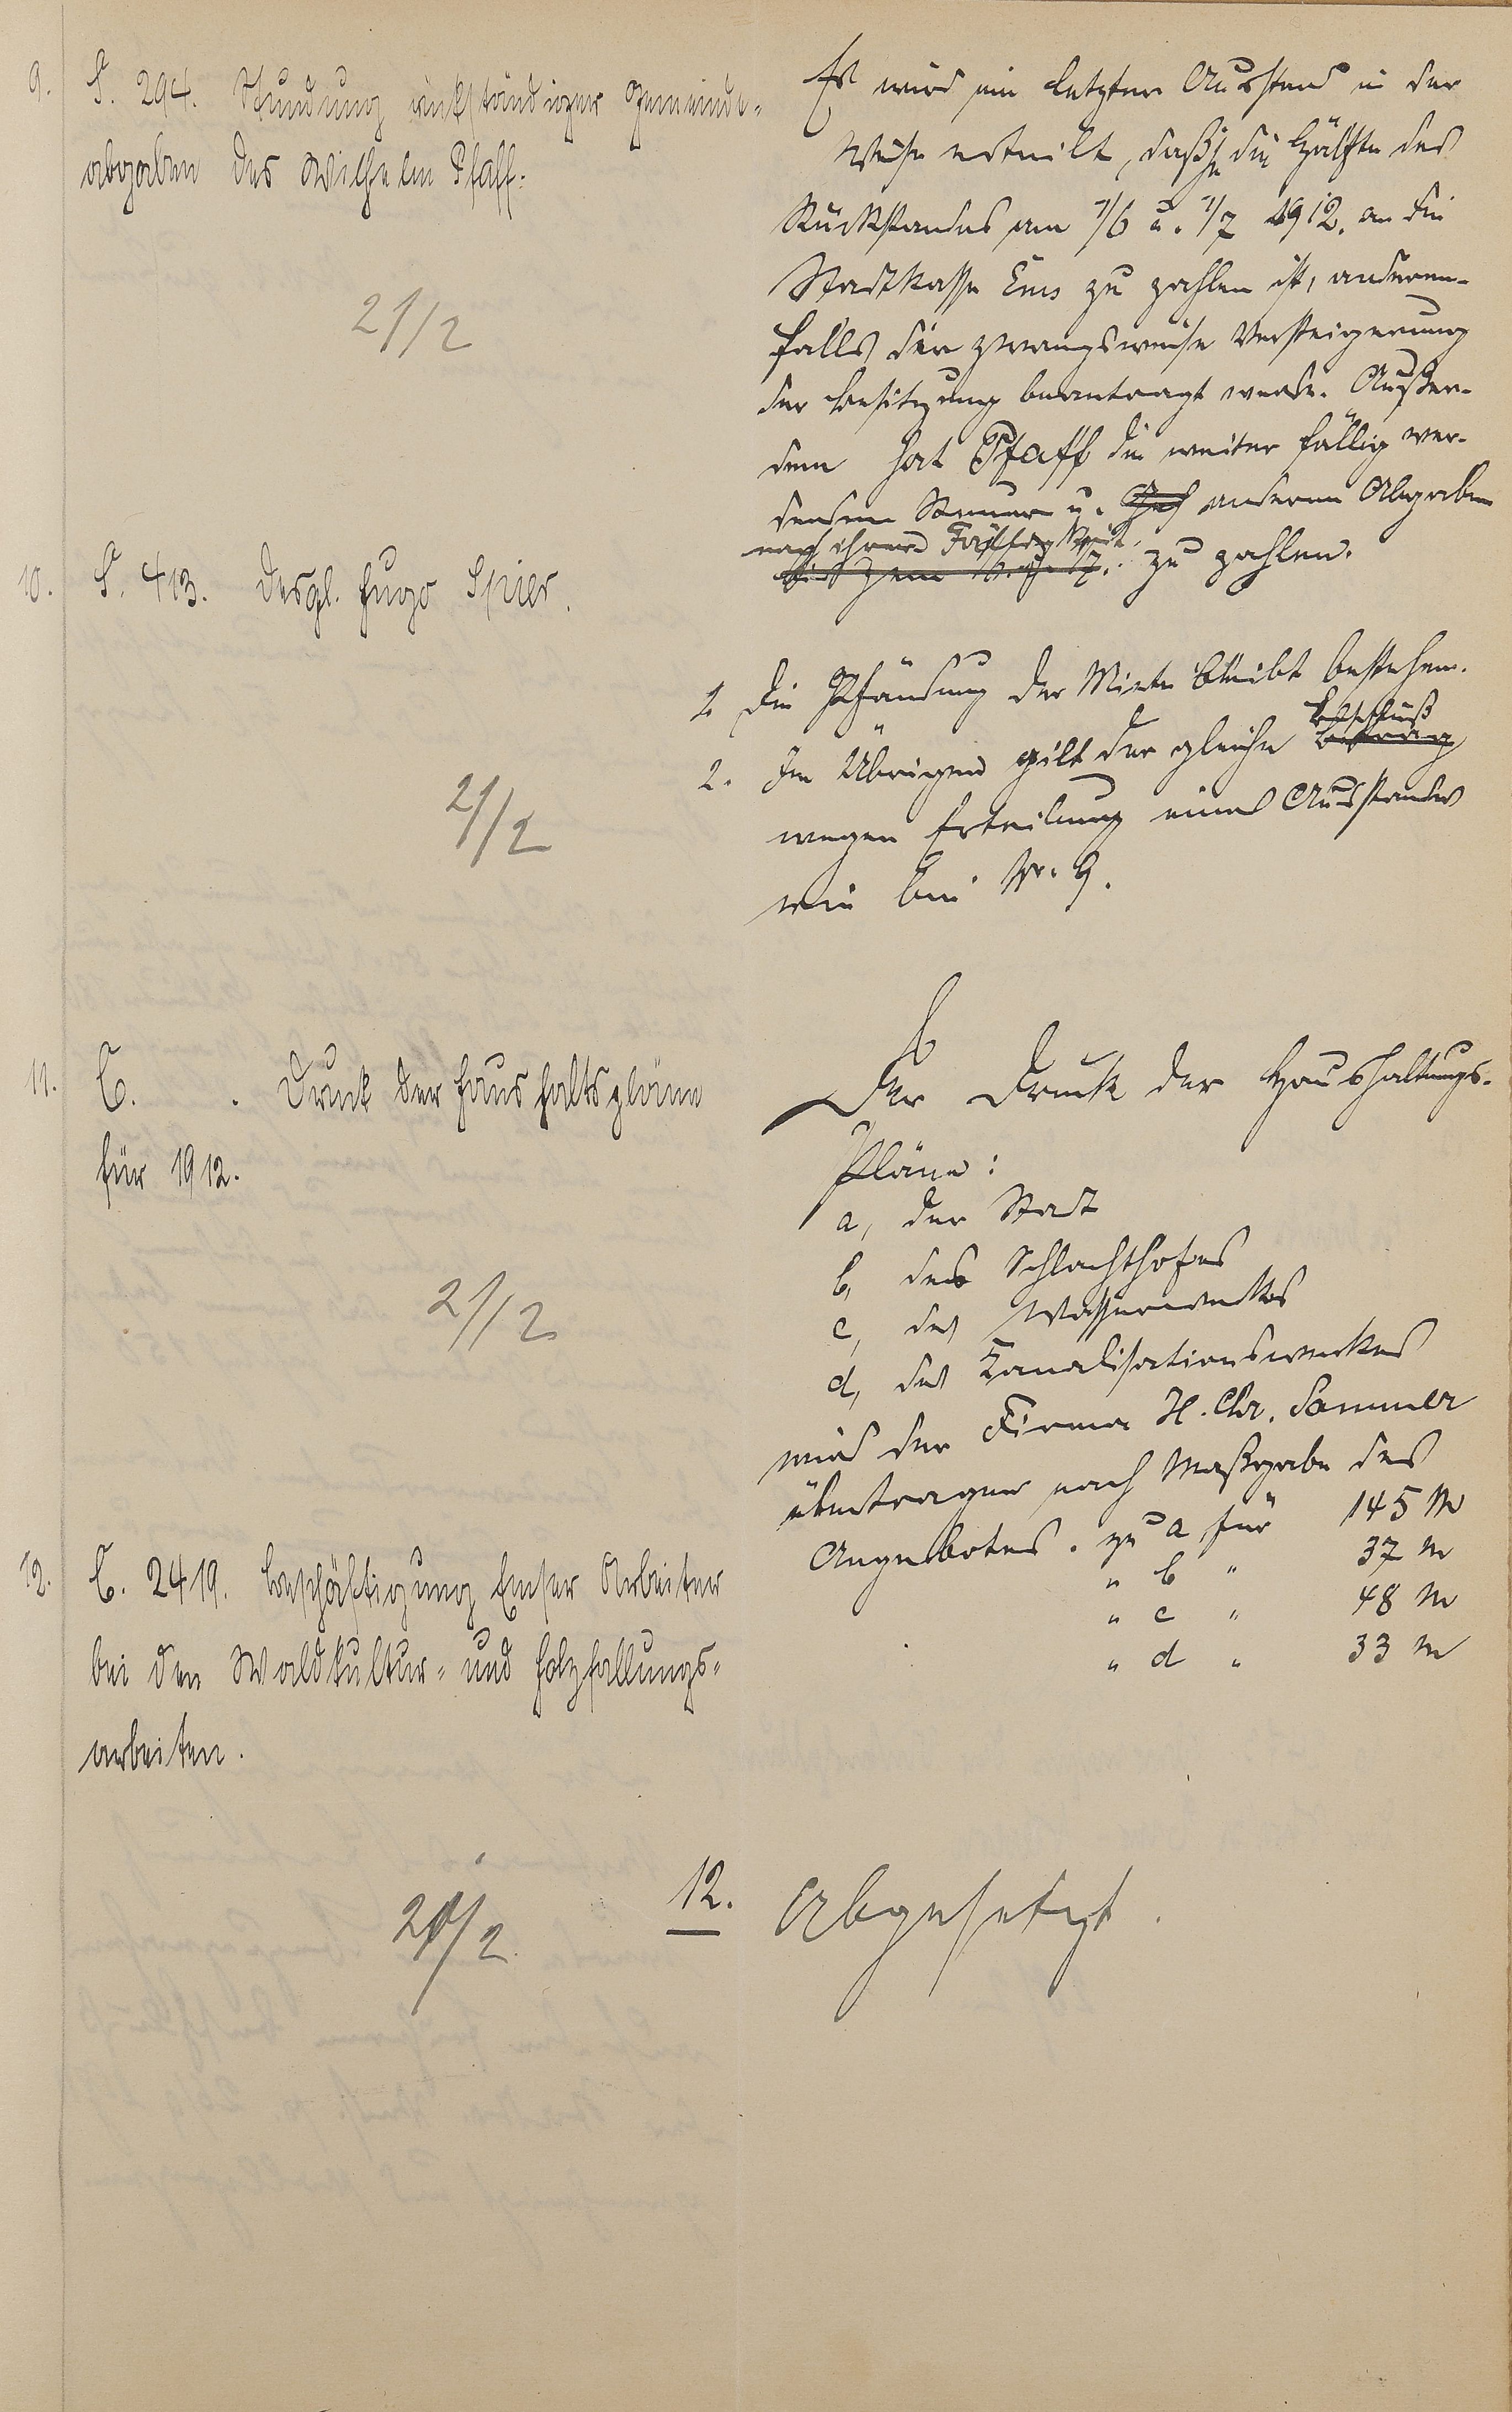 9. S. 294. Stundung rückständiger Gemeinde-
abgaben des Wilhelm Pfaff.
21/2
Es wird ein letzter Ausstand in der
Weise erteilt, daß je die Hälfte des
Rückstandes am 1/6 u. 1/7 1912. an die
Stadtkasse Ems zu zahlen ist, anderen-
falls die zwangsweise Versteigerung
der Besitzung beantragt werde. Außer-
dem hat Pfaff die weiter fällig wer-
denden Steuern u. anderen Abgaben
nach ihrer Fälligkeit
zu zahlen.
10. S. 413. Desgl. Hugo Spier.
21/2
1. Die Pfändung der Miete bleibt bestehen.
2. Im Übrigen gilt der gleiche Beschluß
wegen Erteilung eines Ausstandes
wie bei Nr. 9.
11. C. . Druck der Haushaltspläne
für 1912.
21/2
Der Druck der Haushaltungs-
Pläne:
a, der Stadt
b, des Schlachthofes
c, des Wasserwerkes
d, des Kanalisationswerkes
wird der Firma H. Chr. Sommer
übertragen nach Maßgabe des
Angebotes. zu a für 145 M
" b " 37 M
" c " 48 M
" d " 33 M
12. C. 2419. Beschäftigung Emser Arbeiter
bei den Waldkultur- und Holzfällungs-
arbeiten.
21/2.
12. Abgesetzt.